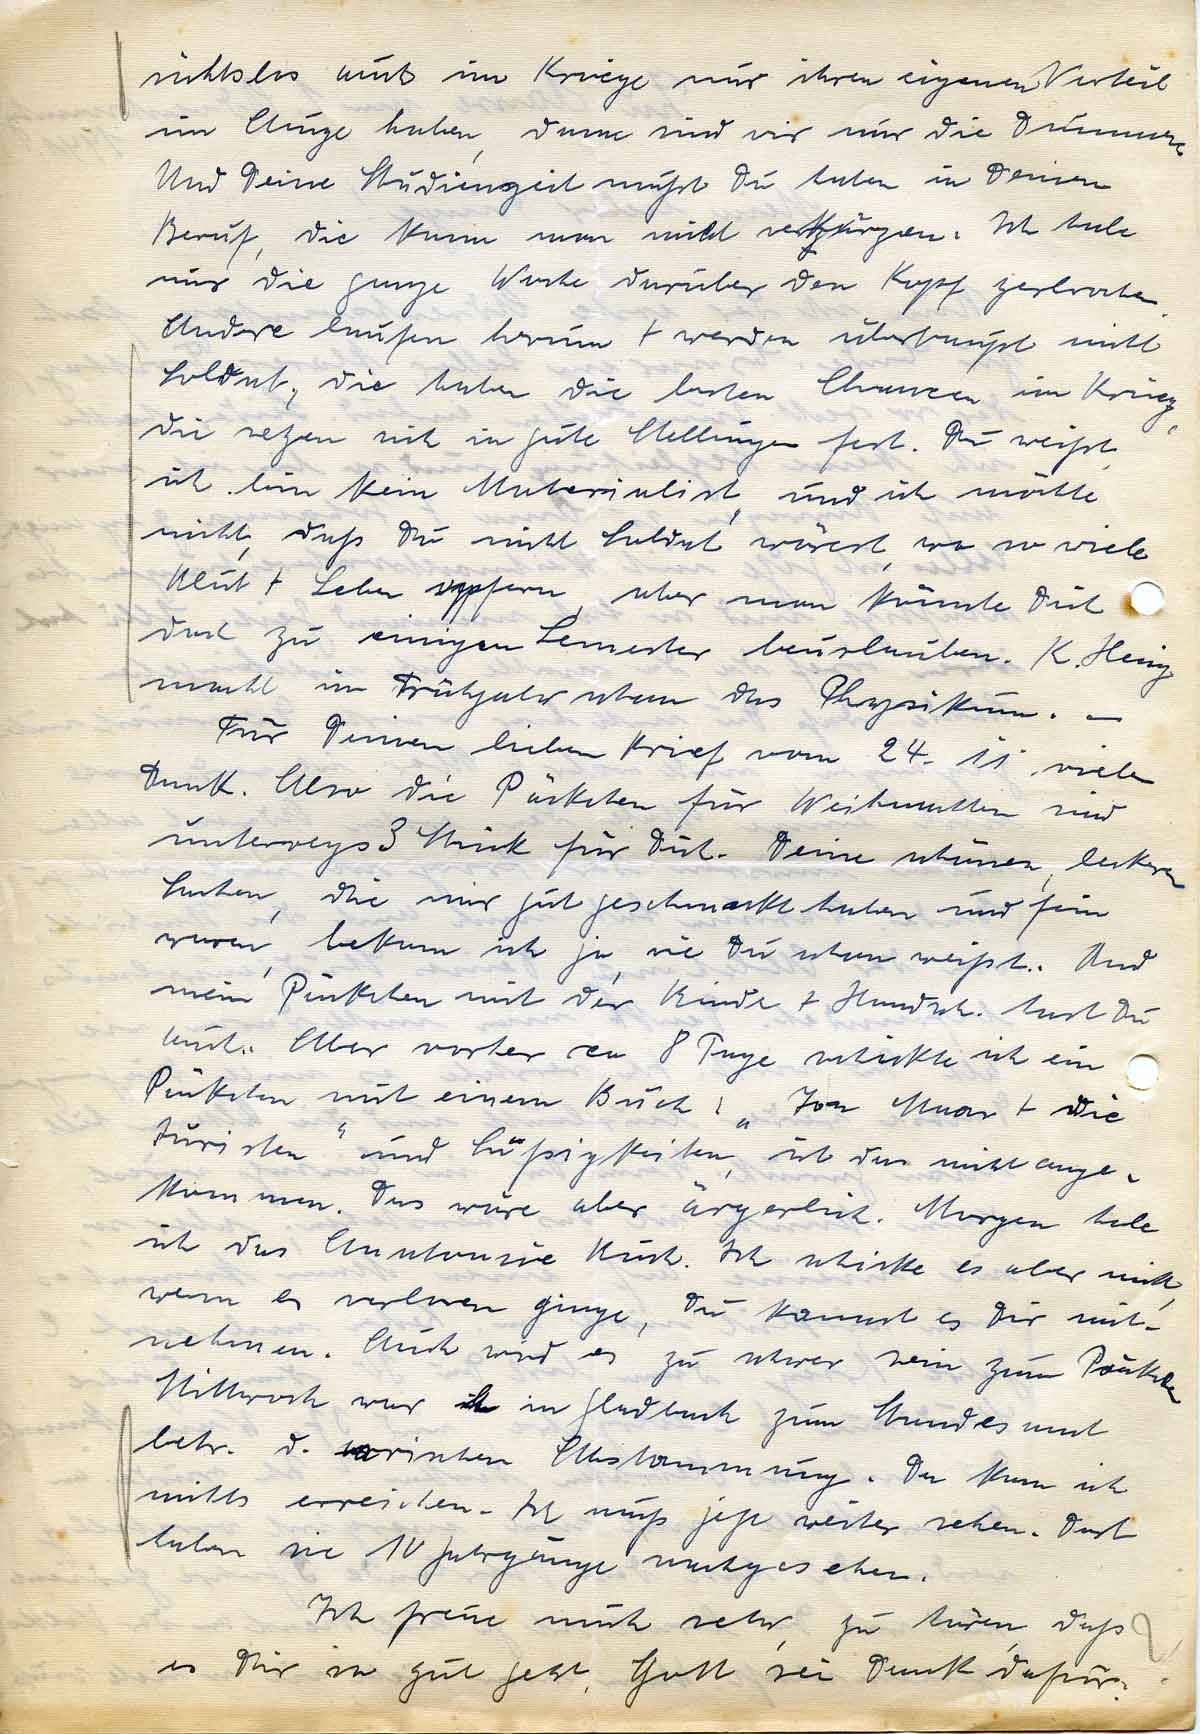 sichtslos auch im Kriege nur ihren eigenen Vorteil
im Auge haben, dann sind wir nur die Dummen
Und Deine Studienzeit mußt Du haben in Deinem
Beruf, die kann man nicht verkürzen. Ich habe
mir die ganze Woche darüber den Kopf zerbrochen.
Andere laufen herum + werden überhaupt nicht
Soldat, die haben die besten Chancen im Krieg,
die setzen sich in gute Stellungen fest. Du weißt,
ich bin kein Materialist, und ich möchte
nicht, daß Du nicht Soldat wärest, wo so viele
Blut + Leben opfern, aber man könnte Dich
doch zu einigen Semester beurlauben. K. Heinz
macht im Frühjahr schon das Physikum. –
Für Deinen lieben Brief vom 24. 11. vielen
Dank. Also die Päckchen für Weihnachten sind
unterwegs 3 Stück für Dich. Deine schönen, leckeren
Sachen, die mir gut geschmeckt haben und fein
waren, bekam ich ja, wie Du schon weißt. Und
mein Päckchen mit der Binde + Handsch. hast Du
auch. Aber vorher ca 8 Tage schickte ich ein
Päckchen mit einem Buch: „Jon + die
Turisten" und Süßigkeiten, ist das nicht ange-
kommen. Das wäre aber ärgerlich. Morgen hole
ich das Anatomie Buch. Ich schicke es aber nicht,
wenn es verloren ginge, Du kannst es Dir mit-
nehmen. Auch wird es zu schwer sein zum Päckchen
Mittwoch war ich in Gladbach zum Standesamt
betr. d. arischen Abstammung. Da kam ich
nichts erreichen. Ich muß jetzt weiter sehen. Dort
haben sie 10 Jahrgänge nachgesehen.
Ich freue mich sehr, zu hören, daß
es Dir so gut geht, Gott sei Dank dafür.